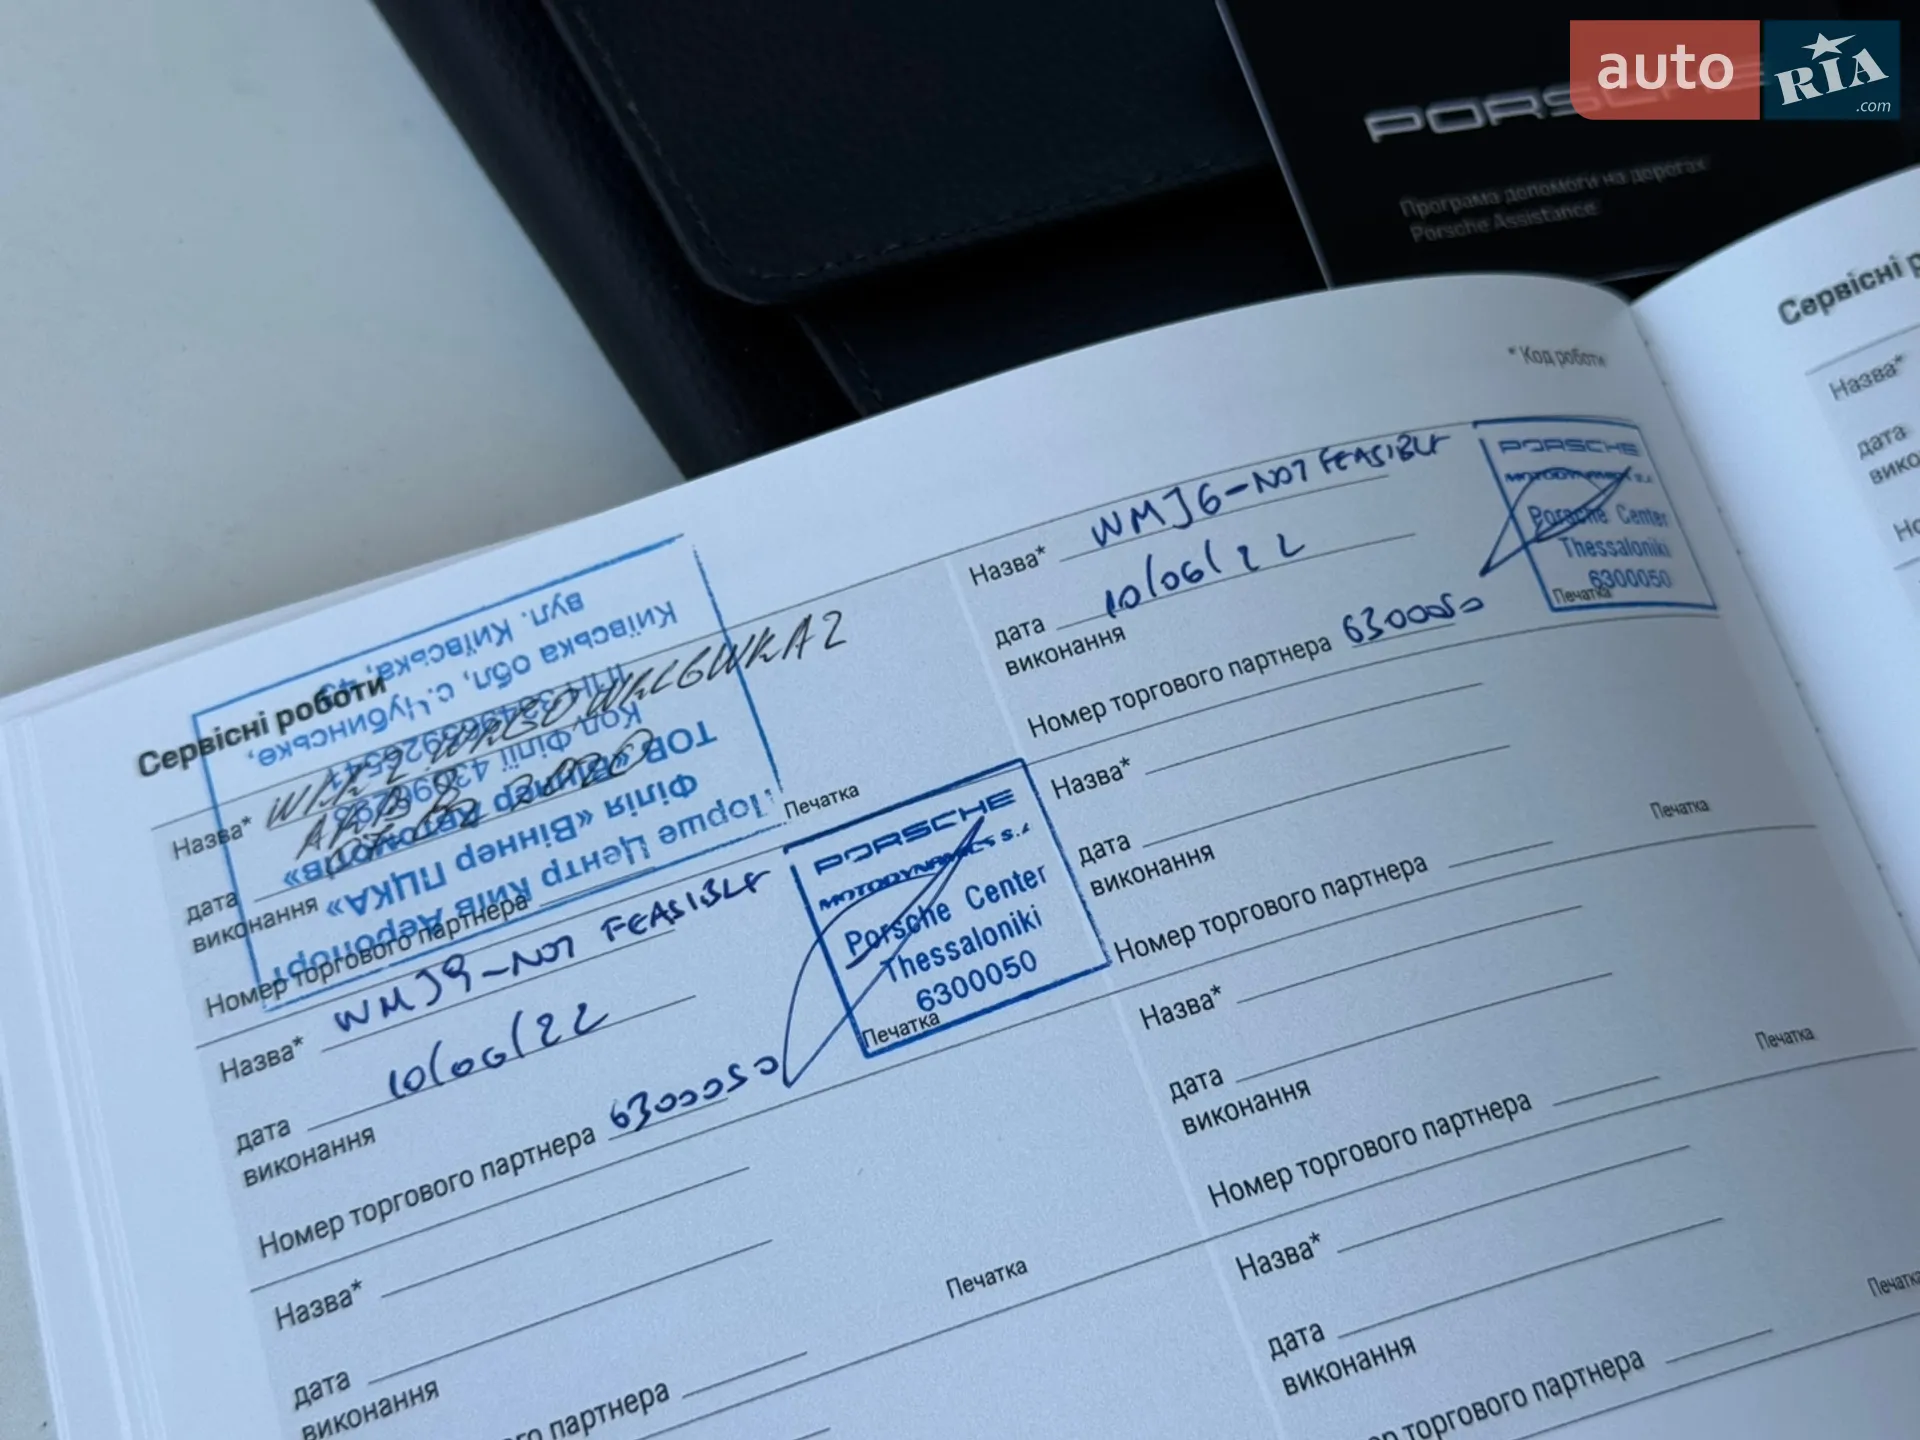 auto RIA.com
PORSCHE
Програма допомоги на дорогах
Porsche Assistance
* Код роботи
Сервісні роботи
Назва*
дата
виконання
Номер торгового партнера
Печатка
Порше Центр Київ Аеропорт
Філія «Віннер ПЦКА»
ТОВ «Віннер Автомотів»
Код філії
Київська обл, с. Чубинське,
вул. Київська, 43
Назва* WMJ9-NOT FEASIBLE
дата 10/06/22
виконання
Номер торгового партнера 6300050
Печатка
PORSCHE
MOTODYNAMICS S.A
Porsche Center
Thessaloniki
6300050
Назва*
дата
виконання
Печатка
Назва* WMJ6-NOT FEASIBLE
дата 10/06/22
виконання
Номер торгового партнера 6300050
Печатка
PORSCHE
MOTODYNAMICS S.A
Porsche Center
Thessaloniki
6300050
Назва*
дата
виконання
Номер торгового партнера
Печатка
Назва*
дата
виконання
Номер торгового партнера
Печатка
Назва*
дата
виконання
торгового партнера
Печатка
Сервісні
Назва*
дата